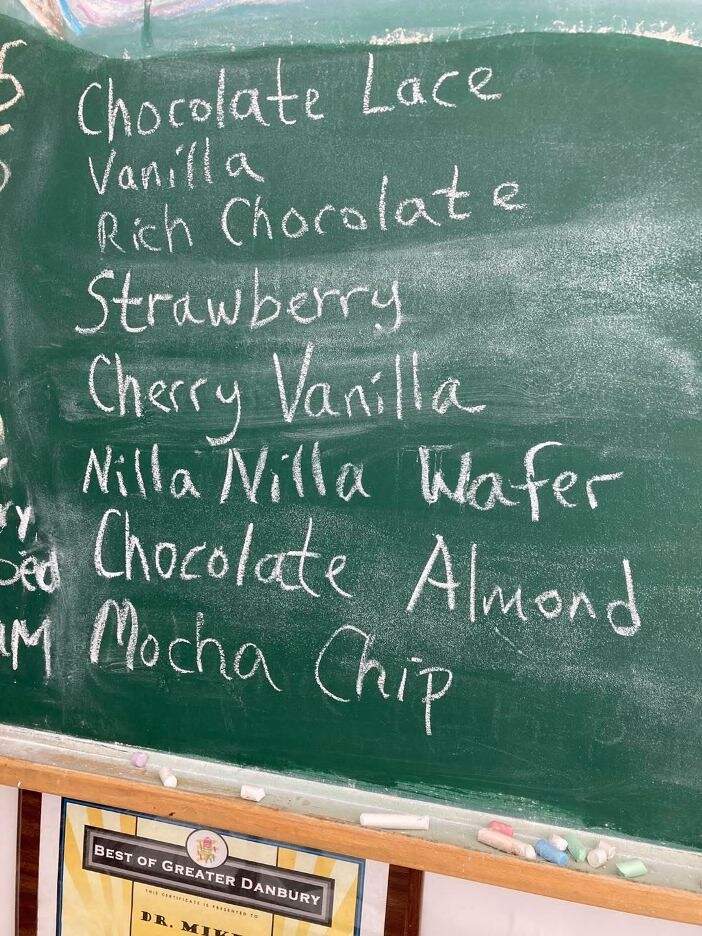 Chocolate Lace
Vanilla
Rich Chocolate
Strawberry
Cherry Vanilla
Nilla Nilla Wafer
Chocolate Almond
Mocha Chip
BEST OF GREATER DANBURY
THIS CERTIFICATE IS PRESENTED TO
DR. MIKE